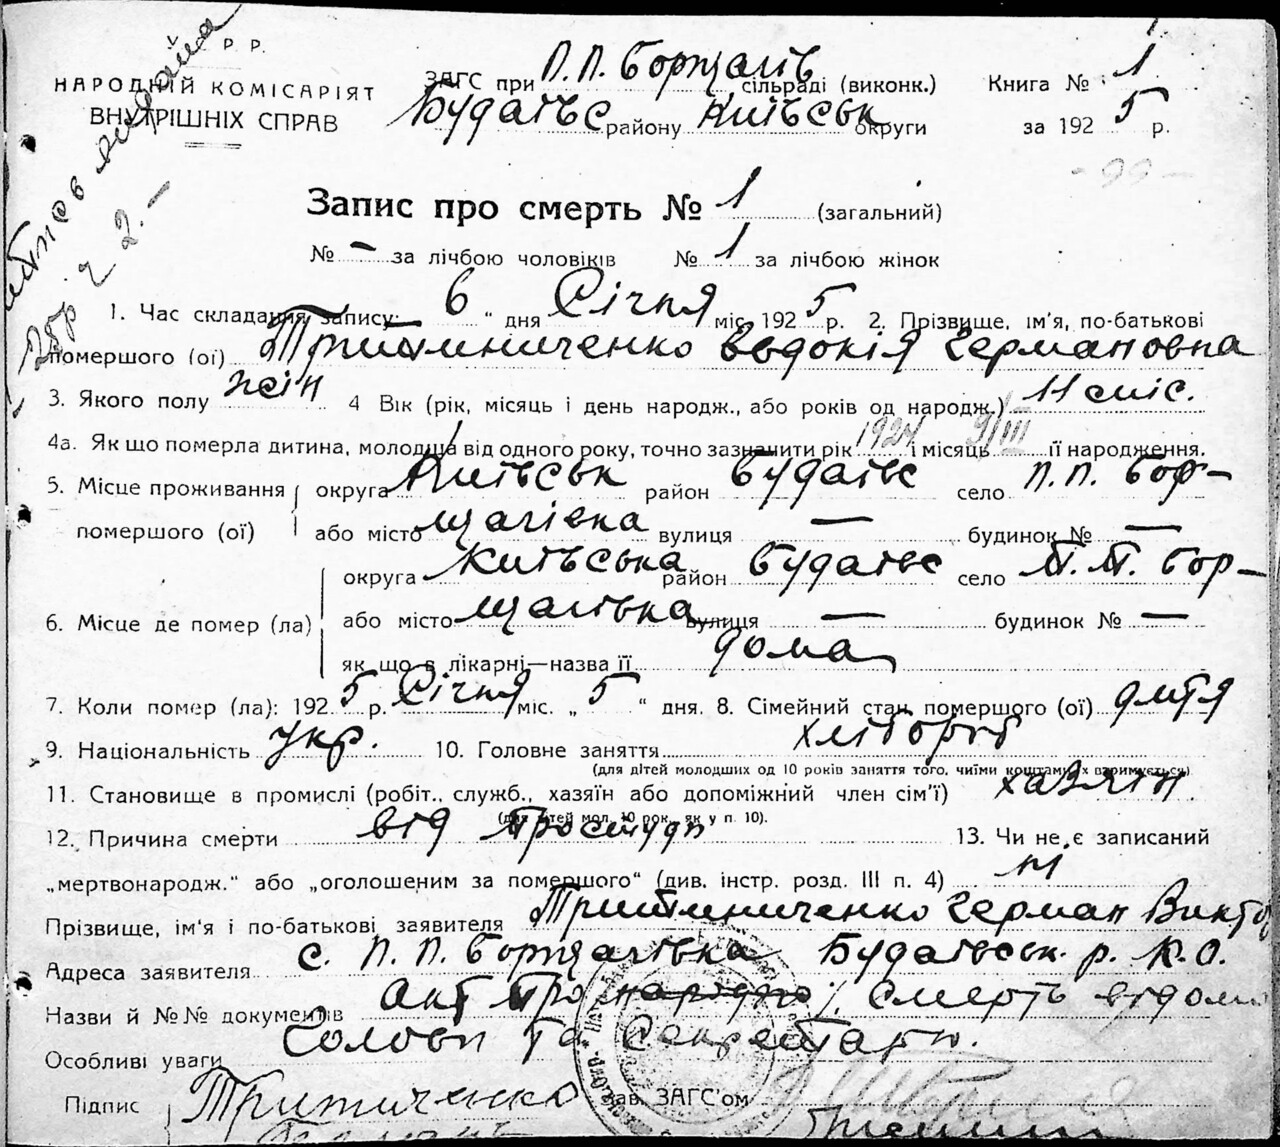 У. Р. Р.
НАРОДНІЙ КОМІСАРІЯТ
ВНУТРІШНІХ СПРАВ
ЗАГС при П.П. Борщагів сільраді (виконк.)
Будаївс району Київськ округи
Книга № 1
за 1925 р.
-99-
Запис про смерть № 1 (загальний)
№ — за лічбою чоловіків № 1 за лічбою жінок
ч 2.-
1. Час складання запису: 6 " дня Січня міс. 1925 р. 2. Прізвище, ім'я, по-батькові
помершого (ої) Євдокія Германовна
3. Якого полу жін 4 Вік (рік, місяць і день народж., або років од народж.) 11 міс.
4а. Як що померла дитина, молодша від одного року, точно зазначити рік 1924 і місяць 9/III її народження.
5. Місце проживання округа Київськ район Будаївс село П.П. Бор-
помершого (ої) або місто щагівка вулиця — будинок № —
округа Київська район Будаївс село П.П. Бор-
6. Місце де помер (ла) або місто щагівка вулиця — будинок № —
як що в лікарні—назва її дома
7. Коли помер (ла): 1925 р. Січня міс. „ 5 " дня. 8. Сімейний стан помершого (ої) дитя
9. Національність укр. 10. Головне заняття хлібороб
(для дітей молодших од 10 років заняття того, чиїми коштами їх вдержується)
11. Становище в промислі (робіт., служб., хазяїн або допоміжний член сім'ї) хазяїн.
(для дітей мол. 10 рок. як у п. 10).
12. Причина смерти від простуди 13. Чи не є записаний
„мертвонародж." або „оголошеним за помершого" (див. інстр. розд. III п. 4) ні
Прізвище, ім'я і по-батькові заявителя Герман Викто
Адреса заявителя с. П.П. Борщагівка Будаївськ. р. К.О.
Назви й №№ документів Акт про народж. смерть відомо
Особливі уваги Голови та Секретарю.
Підпис зав. ЗАГС'ом